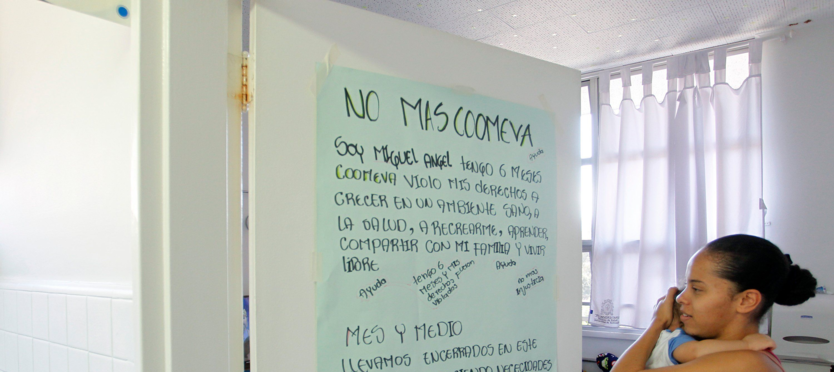 NO MAS COOMEVA
Ayuda
SOY MIGUEL ANGEL TENGO 6 MESES
COOMEVA VIOLO MIS DERECHOS A
CRECER EN UN AMBIENTE SANO, A
LA SALUD, A RECREARME, APRENDER,
COMPARTIR CON MI FAMILIA Y VIVIR
LIBRE
Ayuda
tengo 6
meses y mis
derechos fueron
violados
Ayuda
no mas
MES Y MEDIO
LLEVAMOS ENCERRADOS EN ESTE
NECECIDADES